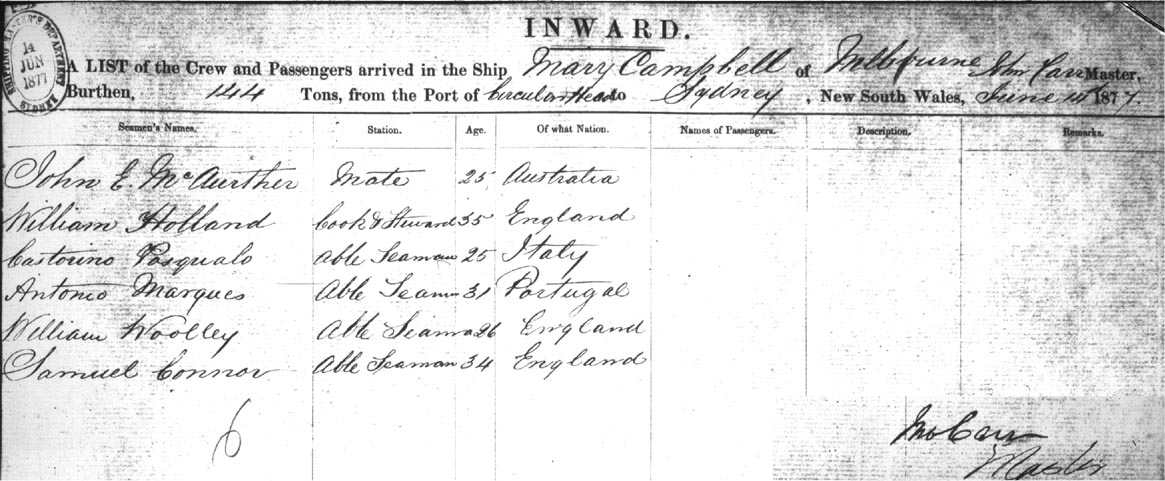 INWARD.
SHIPPING MASTER'S DEPARTMENT
14
JUN
1877
SYDNEY
A LIST of the Crew and Passengers arrived in the Ship Mary Campbell of Melbourne Jno Carr Master,
Burthen, 144 Tons, from the Port of Circular Head to Sydney, New South Wales, June 14th 1877
Seamen's Names. Station. Age. Of what Nation. Names of Passengers. Description. Remarks.
John E. McAurther Mate 25 Australia
William Holland Cook & Steward 35 England
Castorino Pasqualo Able Seaman 25 Italy
Antonio Marques Able Seam 31 Portugal
William Woolley Able Seama 26 England
Samuel Connor Able Seaman 34 England
6
Jno Carr
Master